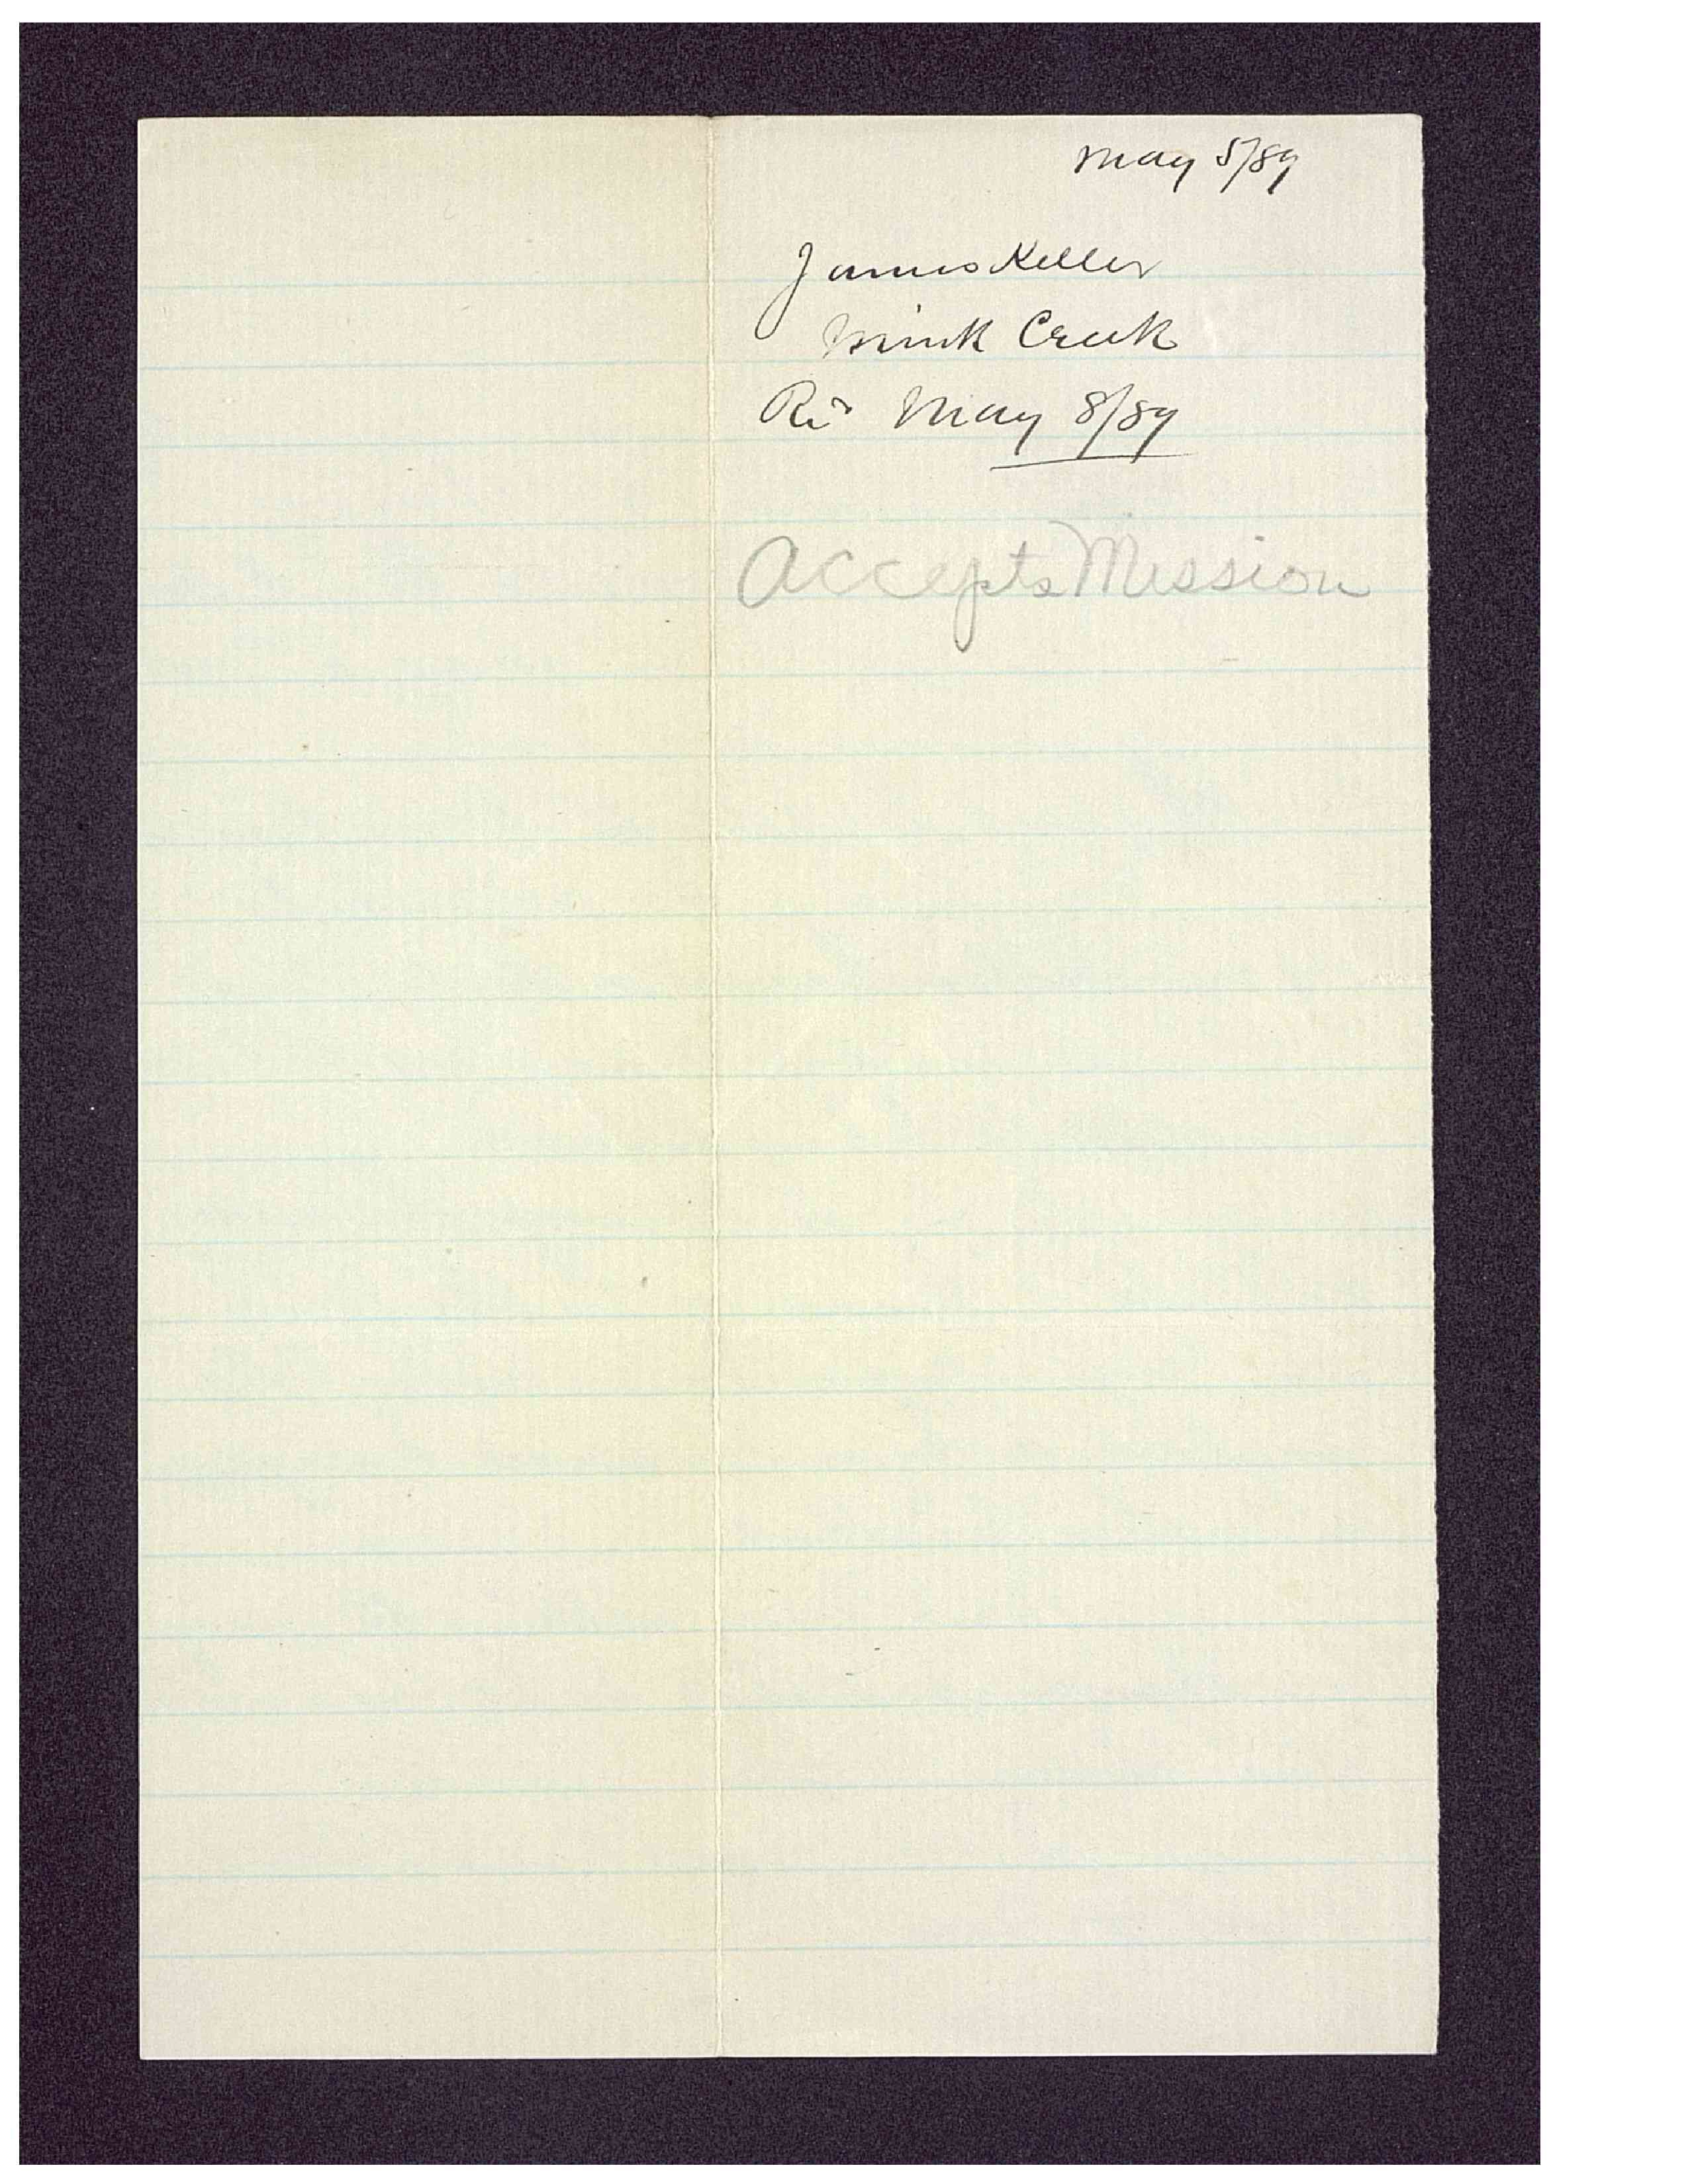 May 5/89
James Keller
Mink Creek
Rec May 8/89
Accepts Mission